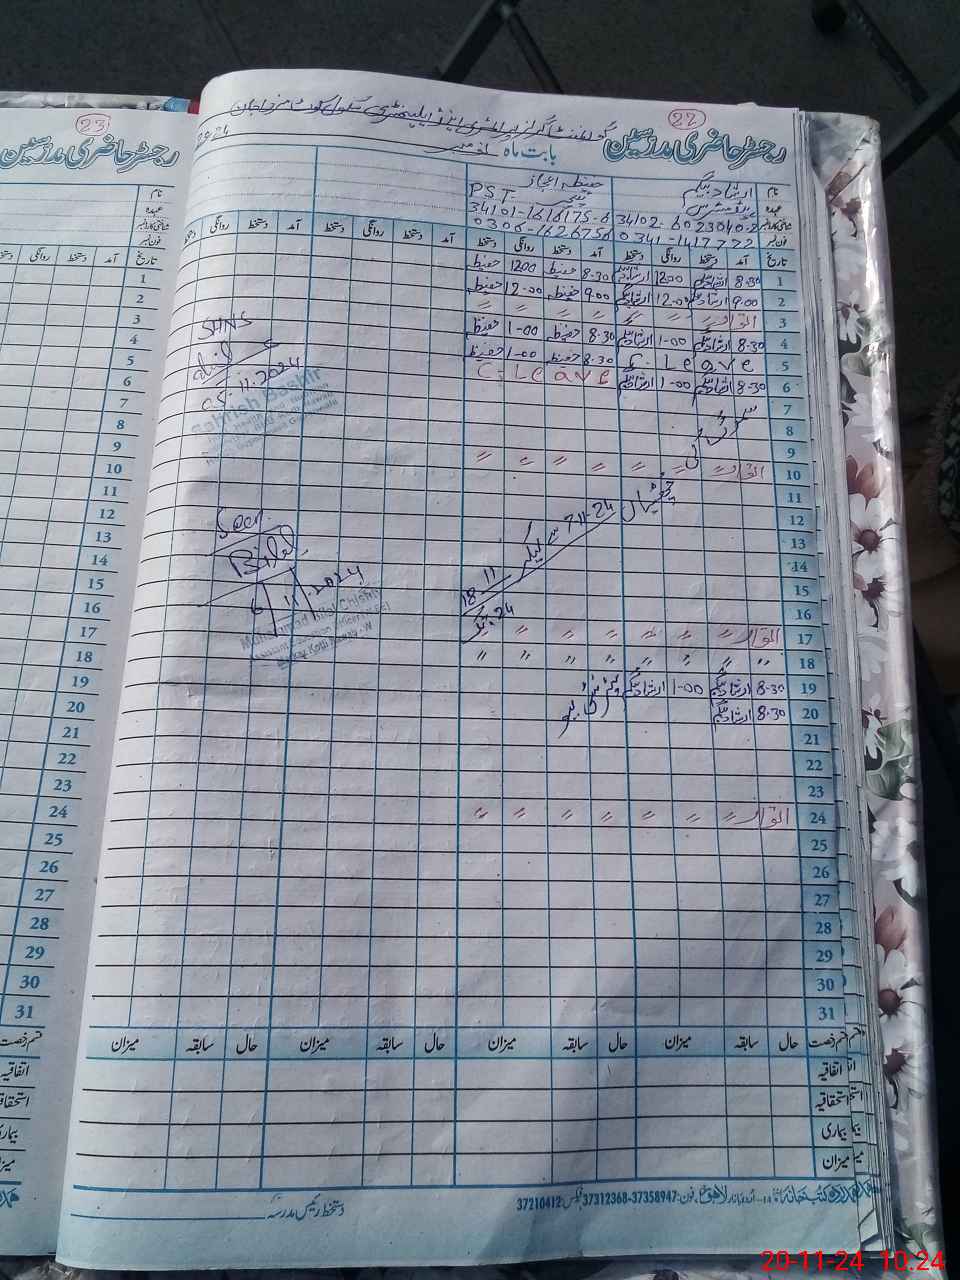 22
رجسٹر حاضری مدرسین
بابت ماہ
2024
گورنمنٹ گرلز پرائمری اینڈ ایلیمنٹری سکول کوٹ مرزا جان
نام ارشاد بیگم حفیظہ اعجاز
عہدہ ہیڈ مسٹرس PST ٹیچر
شناختی کارڈ نمبر 34102-6023040-8 34101-1616175-6
فون نمبر 0341-1417772 0306-1626756
تاریخ آمد دستخط روانگی دستخط آمد دستخط روانگی دستخط آمد دستخط روانگی دستخط آمد دستخط روانگی دستخط
1 8.30 ارشاد بیگم 1200 ارشاد بیگم 8.30 حفیظہ 1200 حفیظہ
2 9.00 ارشاد بیگم 12.00 ارشاد بیگم 9.00 حفیظہ 12.00 حفیظہ
3 اتوار " " " " " "
4 8.30 ارشاد بیگم 1-00 ارشاد بیگم 8.30 حفیظہ 1-00 حفیظہ
5 C. Leave 8.30 حفیظہ 1-00 حفیظہ
6 8.30 ارشاد بیگم 1-00 ارشاد بیگم C. Leave
7
8
9
10 اتوار " " " " " "
11
12
13
14
15
16
17 اتوار " " " " " "
18 " " " " " " "
19 8.30 ارشاد بیگم 1-00 ارشاد بیگم
20 8.30 ارشاد بیگم
21
22
23
24 اتوار " " " " " "
25
26
27
28
29
30
31
چھٹیاں 7-11-24 سے لیکر
18-11-24 تک
SHNS
5.11.2024
Sahrish Bashir
Seen
Bilal
6/11.2024
Muhammad Bilal Chishti
قسم رخصت حال سابقہ میزان حال سابقہ میزان حال سابقہ میزان حال سابقہ میزان
اتفاقیہ
استحقاقیہ
بیماری
میزان
دستخط رئیس مدرسہ
ہمدرد کتب خانہ اردو بازار لاہور، فون: 37358947-37312368 فیکس: 37210412
23
رجسٹر حاضری مدرسین
نام
عہدہ
شناختی کارڈ نمبر
فون نمبر
تاریخ آمد دستخط روانگی
1
2
3
4
5
6
7
8
9
10
11
12
13
14
15
16
17
18
19
20
21
22
23
24
25
26
27
28
29
30
31
قسم رخصت
اتفاقیہ
استحقاقیہ
بیماری
میزان
20-11-24 10:24